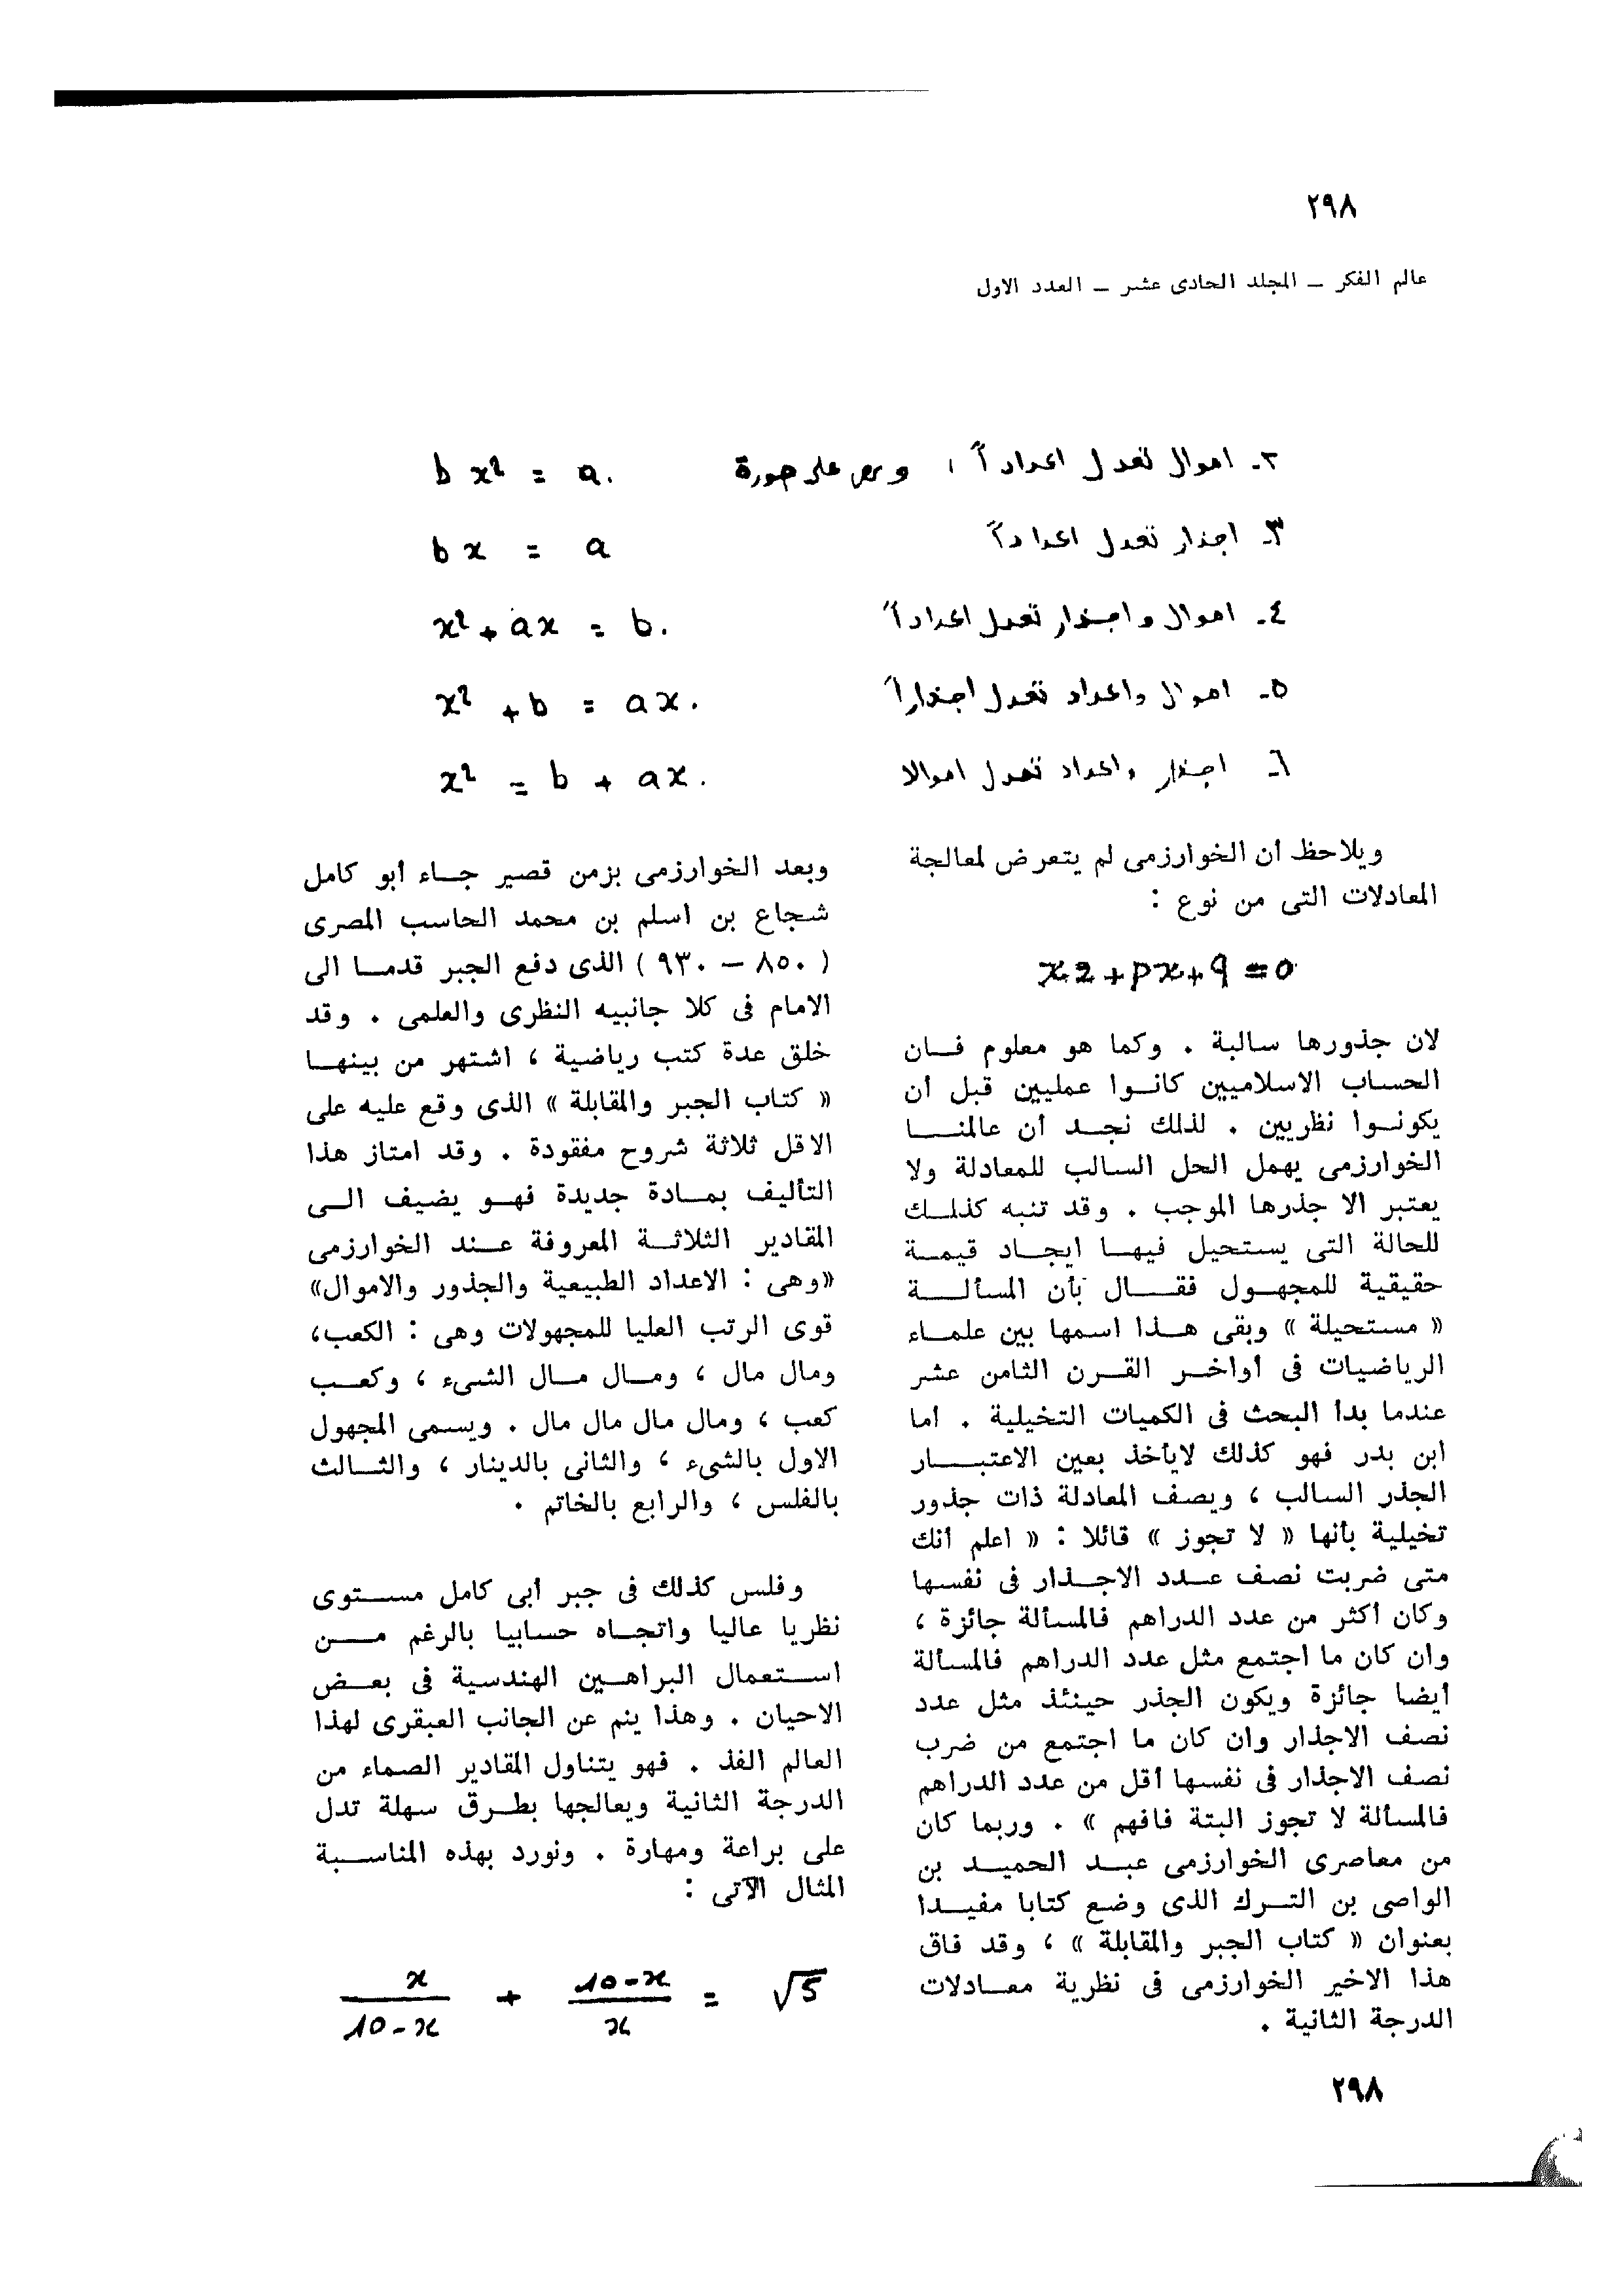 ٢٩٨
عالم الفكر ــ المجلد الحادى عشر ــ العدد الاول
٢- اموال تعدل اعداداً ، وهى على صورة bx² = a.
٣- اجذار تعدل اعداداً bx = a
٤- اموال واجذار تعدل اعداداً x² + ax = b.
٥- اموال واعداد تعدل اجذاراً x² + b = ax.
٦- اجذار واعداد تعدل اموالا x² = b + ax.
ويلاحظ أن الخوارزمى لم يتعرض لمعالجة
المعادلات التى من نوع :
x2+px+q=0
لان جذورها سالبة . وكما هو معلوم فــان
الحساب الاسلاميين كانـوا عمليين قبل أن
يكونـوا نظريين . لذلك نجـد أن عالمنــا
الخوارزمى يهمل الحل السالب للمعادلة ولا
يعتبر الا جذرها الموجب . وقد تنبه كذلـك
للحالة التى يستحيل فيهـا ايجـاد قيمـة
حقيقية للمجهـول فقــال بأن المسألـــة
« مستحيلة » وبقى هـذا اسمها بين علمـاء
الرياضيات فى أواخـر القـرن الثامن عشر
عندما بدأ البحث فى الكميات التخيلية . أما
ابن بدر فهو كذلك لايأخذ بعين الاعتبــار
الجذر السالب ، ويصف المعادلة ذات جذور
تخيلية بأنها « لا تجوز » قائلا : « اعلم أنك
متى ضربت نصف عـدد الاجـذار فى نفسها
وكان أكثر من عدد الدراهم فالمسألة جائزة ،
وان كان ما اجتمع مثل عدد الدراهم فالمسألة
أيضا جائزة ويكون الجذر حينئذ مثل عدد
نصف الاجذار وان كان ما اجتمع من ضرب
نصف الاجذار فى نفسها أقل من عدد الدراهم
فالمسألة لا تجوز البتة فافهم » . وربما كان
من معاصرى الخوارزمى عبـد الحميـد بن
الواصى بن التـرك الذى وضع كتابا مفيـدا
بعنوان « كتاب الجبر والمقابلة » ، وقد فاق
هذا الاخير الخوارزمى فى نظرية معـادلات
الدرجة الثانية .
وبعد الخوارزمى بزمن قصير جـاء أبو كامل
شجاع بن اسلم بن محمد الحاسب المصرى
( ٨٥٠ ــ ٩٣٠ ) الذى دفع الجبر قدمـا الى
الامام فى كلا جانبيه النظرى والعلمى . وقد
خلق عدة كتب رياضية ، اشتهر من بينهـا
« كتاب الجبر والمقابلة » الذى وقع عليه على
الاقل ثلاثة شروح مفقودة . وقد امتاز هذا
التأليف بمـادة جديدة فهـو يضيف الـى
المقادير الثلاثـة المعروفة عـند الخوارزمى
«وهى : الاعداد الطبيعية والجذور والاموال»
قوى الرتب العليا للمجهولات وهى : الكعب،
ومال مال ، ومـال مـال الشىء ، وكعـب
كعب ، ومال مال مال مال . ويسمى المجهول
الاول بالشىء ، والثانى بالدينار ، والثـالث
بالفلس ، والرابع بالخاتم .
وفلس كذلك فى جبر أبى كامل مسـتوى
نظريا عاليا واتجـاه حسابيا بالرغم مــن
استعمال البراهـين الهندسية فى بعـض
الاحيان . وهذا ينم عن الجانب العبقرى لهذا
العالم الفذ . فهو يتناول المقادير الصماء من
الدرجة الثانية ويعالجها بطـرق سهلة تدل
على براعة ومهارة . ونورد بهذه المناسـبة
المثال الآتى :
x/(10-x) + (10-x)/x = √5
٢٩٨